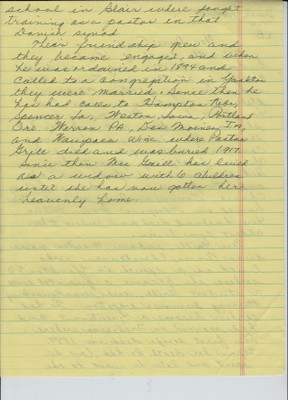 school in Blair where sought
training as a pastor in that
Danish synod
Their friendship grew and
they became engaged, and when
he was ordained in 1894 and
called to a congregation in Yankton
they were married. Since then he
has had calls to Hampton Nebr,
Spencer Ia, Weston Iowa, Portland
Ore Warren PA, Des Moines, Ia,
and Waupaca Wisc. where Pastor
died and was buried 1917.
Since then Mrs has lived
as a widow with 6 children
until she has now gotten her
heavenly home.